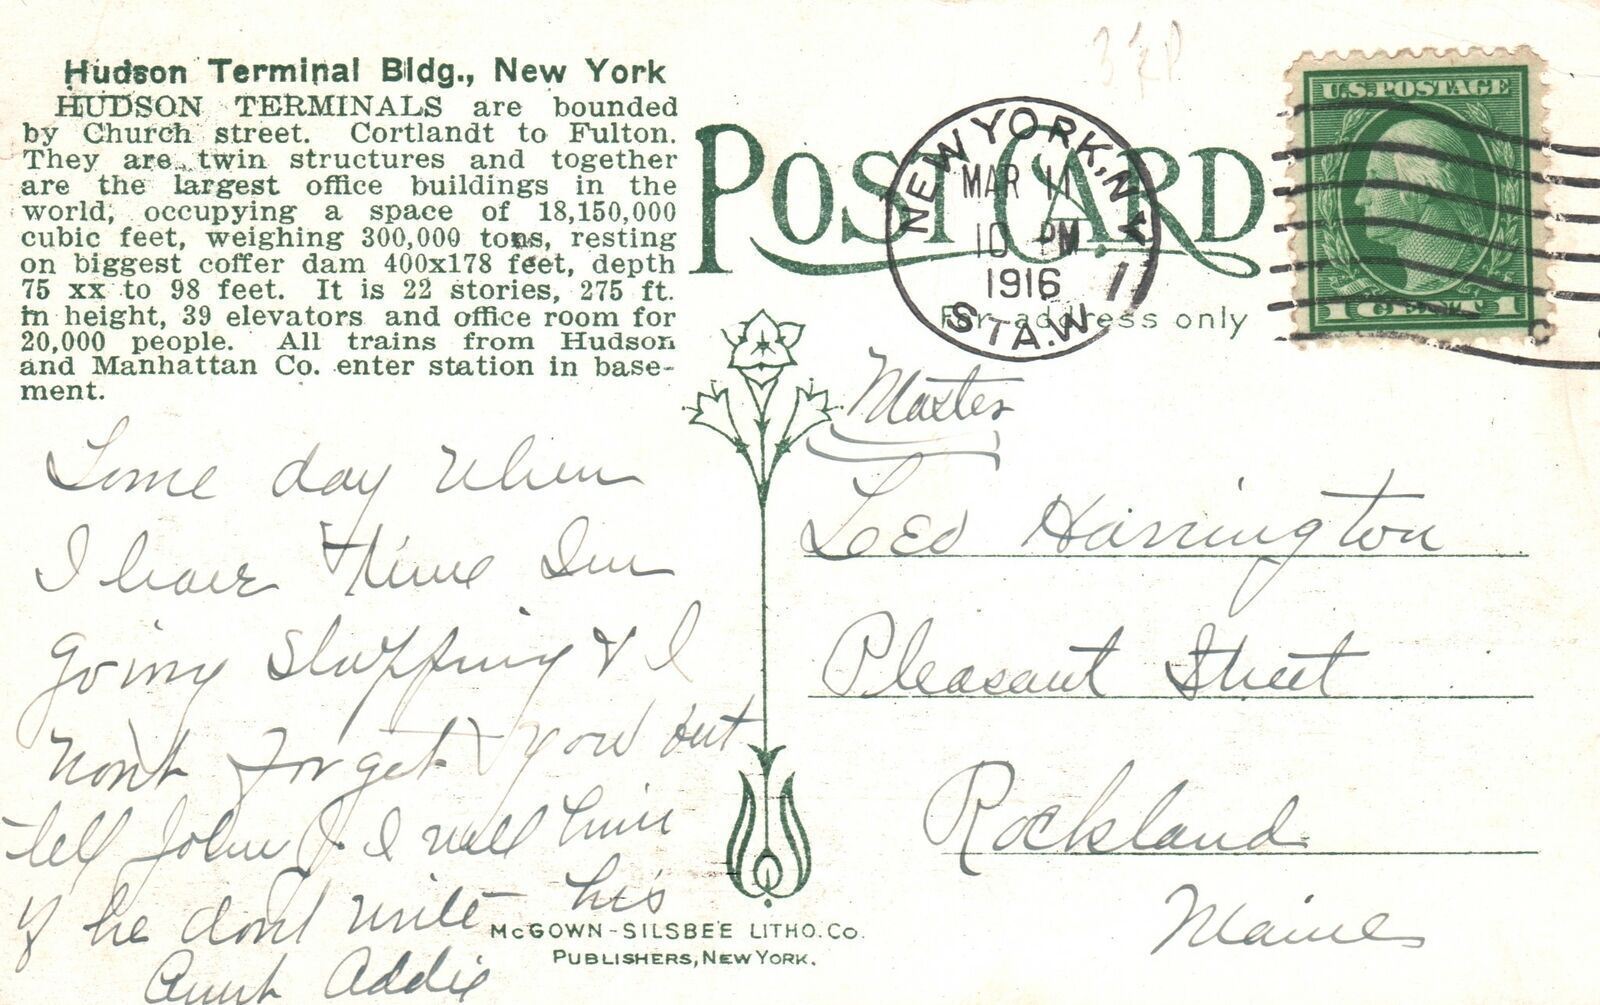 Hudson Terminal Bldg., New York
HUDSON TERMINALS are bounded
by Church street. Cortlandt to Fulton.
They are twin structures and together
are the largest office buildings in the
world, occupying a space of 18,150,000
cubic feet, weighing 300,000 tons, resting
on biggest coffer dam 400x178 feet, depth
75 xx to 98 feet. It is 22 stories, 275 ft.
in height, 39 elevators and office room for
20,000 people. All trains from Hudson
and Manhattan Co. enter station in base-
ment.
Some day when
I have time Im
going shopping & I
wont forget you but
tell John J. I will him
if he dont write his
Aunt Addie
POST CARD
For address only
NEW YORK, N.Y.
MAR 11
10 PM
1916
STA. W
U.S. POSTAGE
1 CENT 1
Master
Leo Harrington
Pleasant Street
Rockland
Maine
McGOWN-SILSBEE LITHO. Co.
PUBLISHERS, NEW YORK.